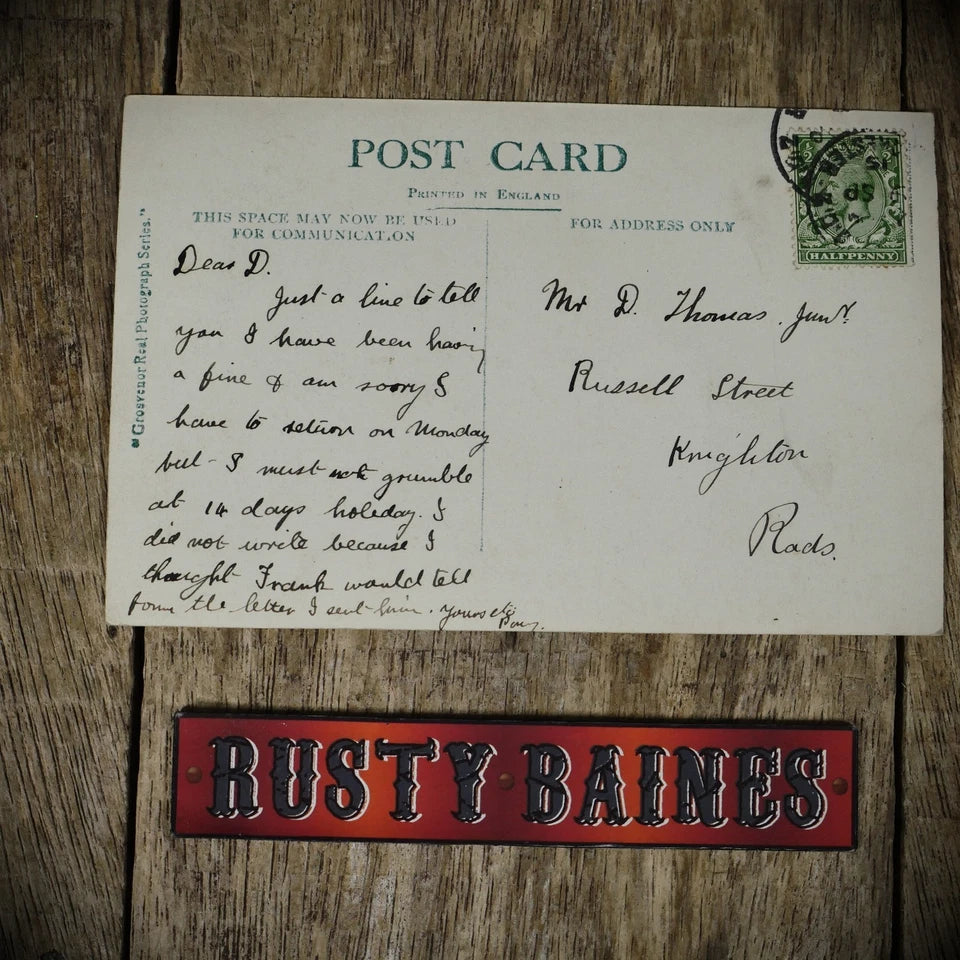 POST CARD
PRINTED IN ENGLAND
THIS SPACE MAY NOW BE USED
FOR COMMUNICATION
FOR ADDRESS ONLY
"Grosvenor Real Photograph Series."
HALFPENNY
Dear D.
Just a line to tell
you I have been having
a fine & am sorry I
have to return on Monday
but I must not grumble
at 14 days holiday. I
did not write because I
thought Frank would tell
form the letter I sent him. yours etc
Mr D. Thomas. Junr.
Russell Street
Knighton
Rads.
RUSTY BAINES